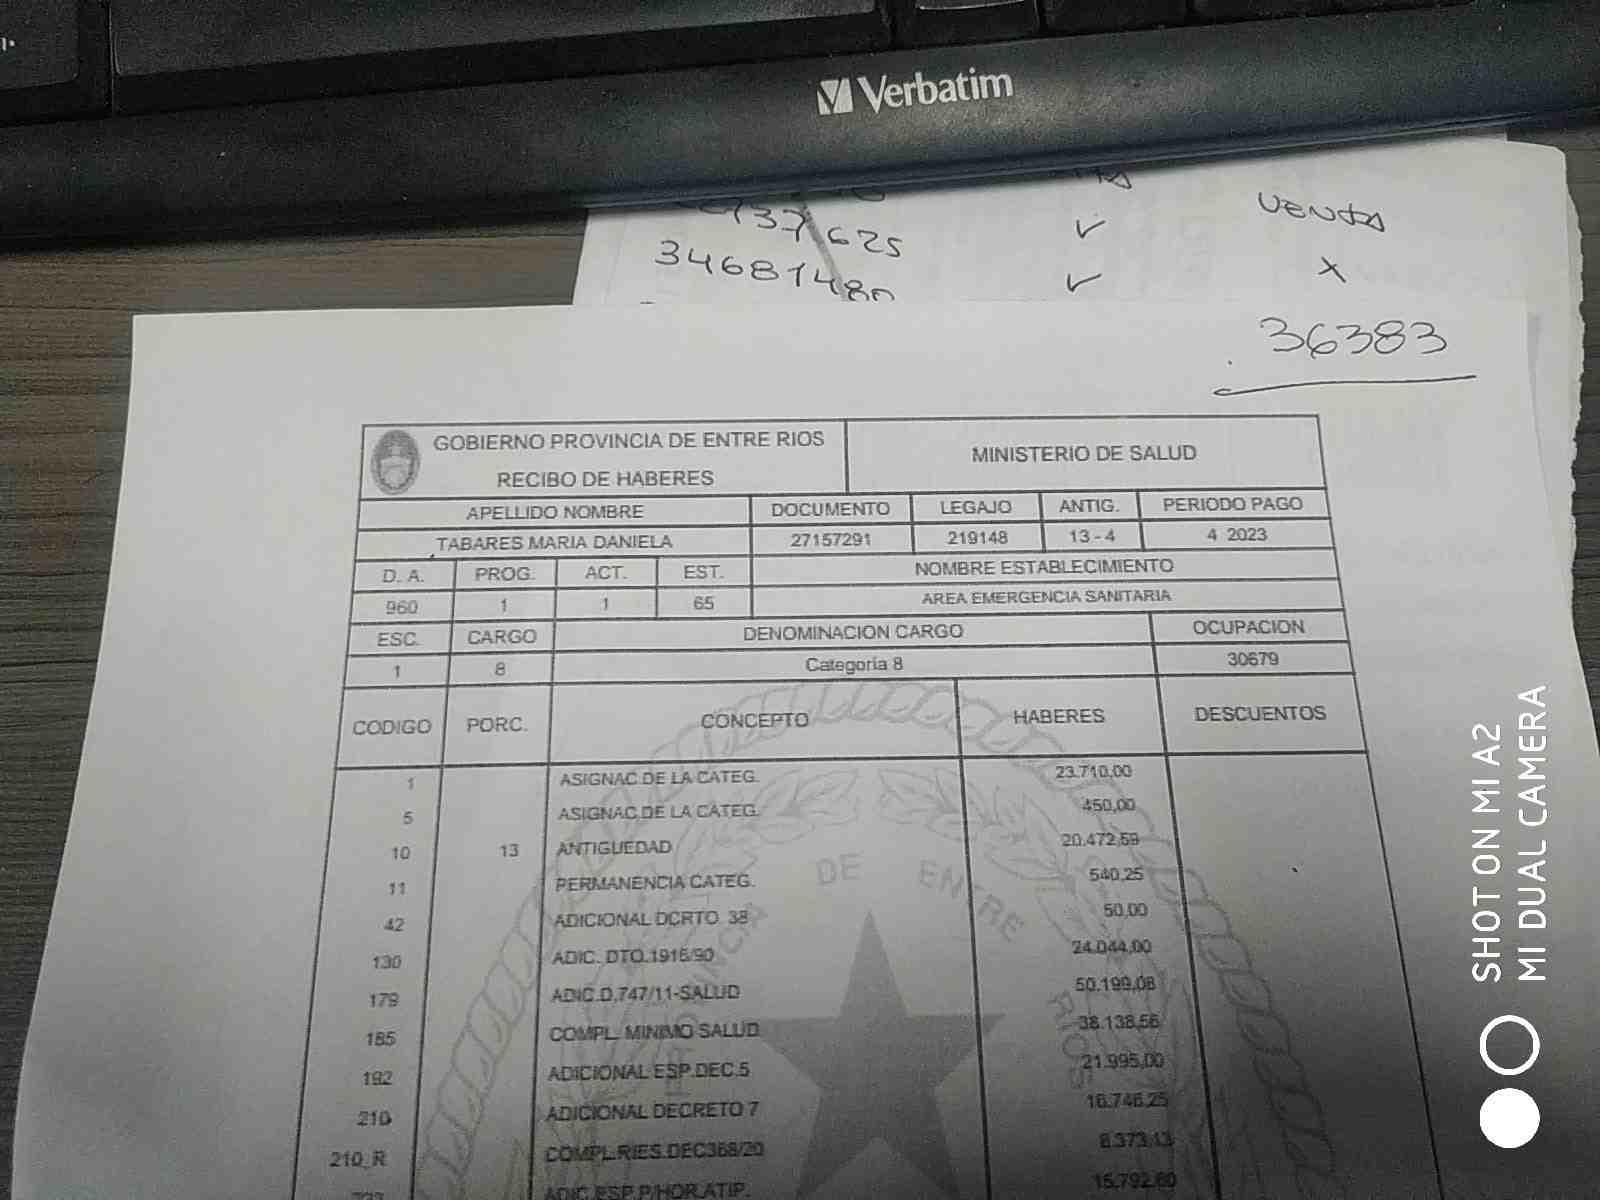 Verbatim
737625
VENTA
34681480
X
36383
GOBIERNO PROVINCIA DE ENTRE RIOS
RECIBO DE HABERES
MINISTERIO DE SALUD
APELLIDO NOMBRE DOCUMENTO LEGAJO ANTIG. PERIODO PAGO
TABARES MARIA DANIELA 27157291 219148 13-4 4 2023
D. A. PROG. ACT. EST. NOMBRE ESTABLECIMIENTO
960 1 1 65 AREA EMERGENCIA SANITARIA
ESC. CARGO DENOMINACION CARGO OCUPACION
1 8 Categoría 8 30679
CODIGO PORC. CONCEPTO HABERES DESCUENTOS
1 ASIGNAC.DE LA CATEG. 23.710,00
5 ASIGNAC.DE LA CATEG. 450,00
10 13 ANTIGUEDAD 20.472,59
11 PERMANENCIA CATEG. 540,25
42 ADICIONAL DCRTO. 38 50,00
130 ADIC. DTO.1916/90 24.044,00
179 ADIC.D.747/11-SALUD 50.199,08
185 COMPL. MINIMO SALUD 38.138,56
192 ADICIONAL ESP.DEC.5 21.995,00
210 ADICIONAL DECRETO 7 16.746,25
210_R COMPL.RIES.DEC368/20 8.373,13
ADIC.ESP.P/HOR.ATIP. 15.792,60
PROVINCIA DE ENTRE RIOS
SHOT ON MI A2
MI DUAL CAMERA